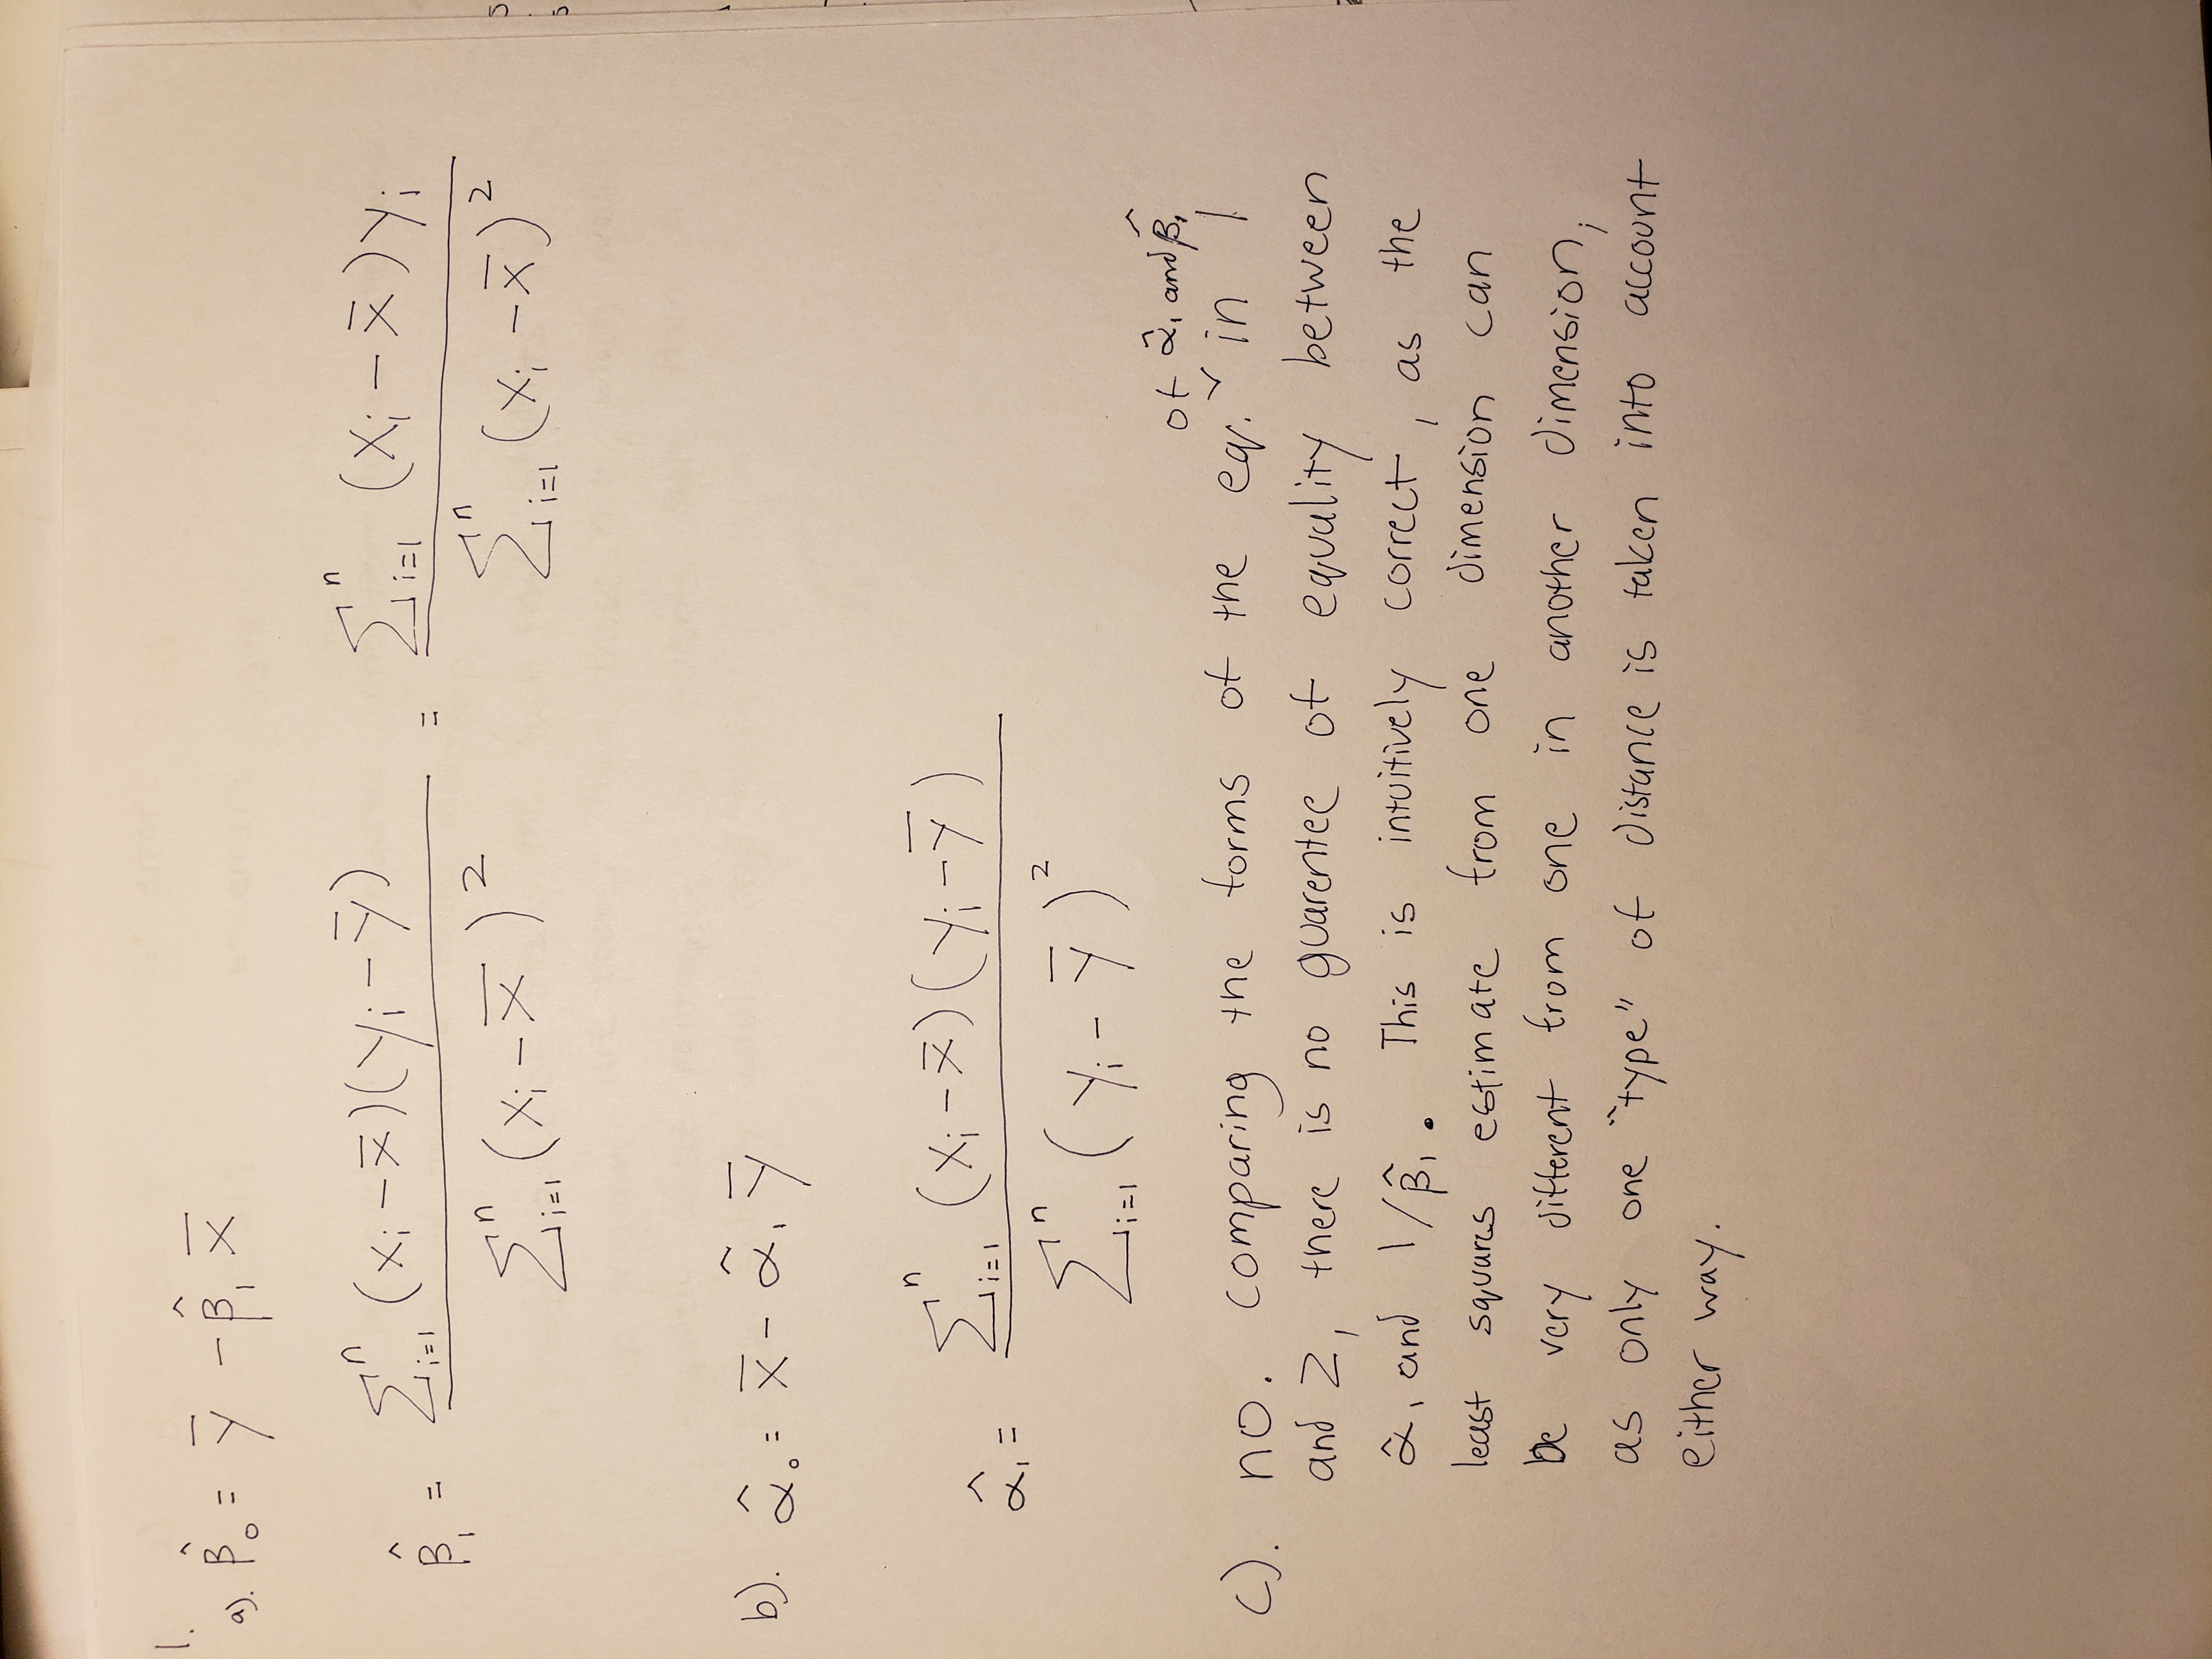 1.
a). β̂₀ = ȳ - β̂₁ x̄
β̂₁ = ∑ⁿᵢ₌₁ (xᵢ - x̄)(yᵢ - ȳ) / ∑ⁿᵢ₌₁ (xᵢ - x̄)² = ∑ⁿᵢ₌₁ (xᵢ - x̄)yᵢ / ∑ⁿᵢ₌₁ (xᵢ - x̄)²
b). α̂₀ = x̄ - α̂₁ ȳ
α̂₁ = ∑ⁿᵢ₌₁ (xᵢ - x̄)(yᵢ - ȳ) / ∑ⁿᵢ₌₁ (yᵢ - ȳ)²
of α̂₁ and β̂₁
c). no. comparing the forms of the eq. ˅ in 1
and 2, there is no guarentee of equality between
α̂₁ and 1/β̂₁. This is intuitively correct, as the
least squares estimate from one dimension can
be very different from one in another dimension,
as only one "type" of distance is taken into account
either way.